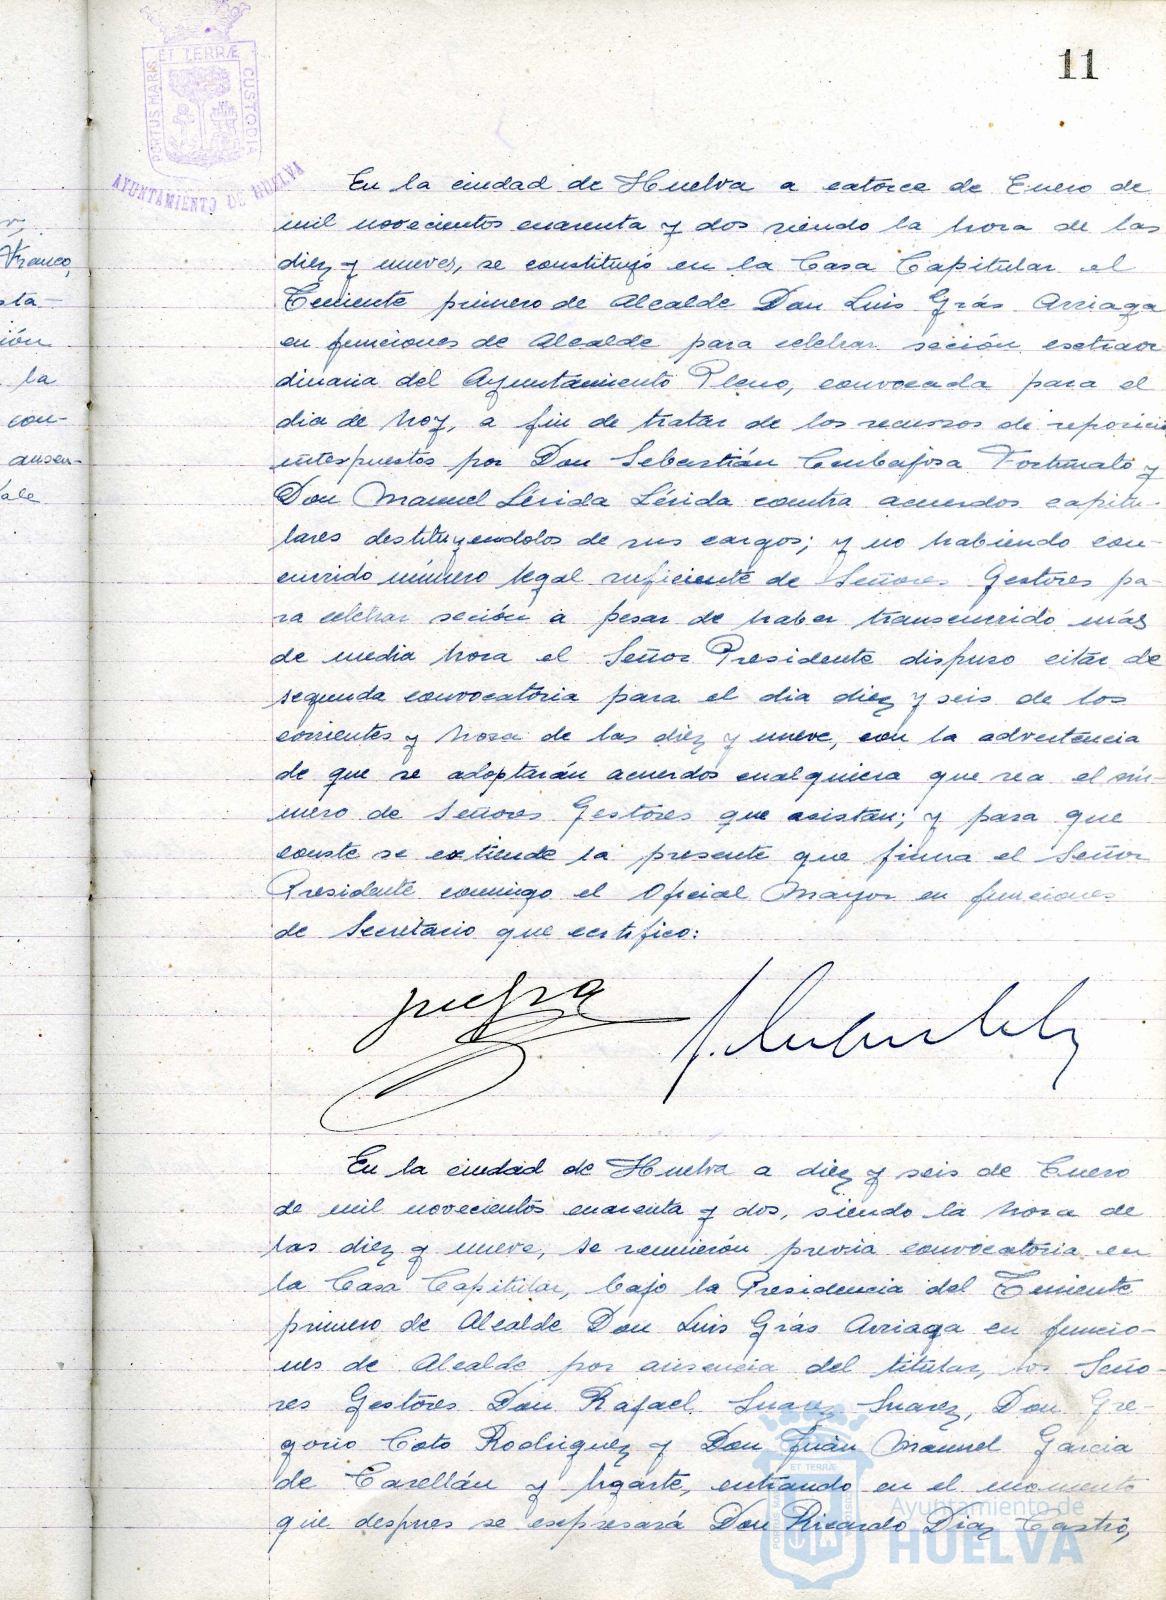 11
PORTUS MARIS ET TERRÆ CUSTODIA
AYUNTAMIENTO DE HUELVA
Franco,
sta-
ión
la
con-
ausen-
Vale
En la ciudad de Huelva a catorce de Enero de
mil novecientos cuarenta y dos siendo la hora de las
diez y nueve, se constituyó en la Casa Capitular el
Teniente primero de Alcalde Don Luis Grás Arriaga
en funciones de Alcalde para celebrar seción extraor
dinaria del Ayuntamiento Pleno, convocada para el
dia de hoy, a fin de tratar de los recursos de reposició
interpuestos por Don Sebastián Carbajosa Fortunato y
Don Manuel Lérida Lérida contra acuerdos capitu-
lares destituyendolos de sus cargos; y no habiendo con-
currido número legal suficiente de Señores Gestores pa-
ra celebrar seción a pesar de haber transcurrido más
de media hora el Señor Presidente dispuso citar de
segunda convocatoria para el dia diez y seis de los
corrientes y hora de las diez y nueve, con la advertencia
de que se adoptarán acuerdos cualquiera que sea el nú-
mero de Señores Gestores que asistan; y para que
conste se extiende la presente que firma el Señor
Presidente conmigo el Oficial Mayor en funciones
de Secretario que certifico:
En la ciudad de Huelva a diez y seis de Enero
de mil novecientos cuarenta y dos, siendo la hora de
las diez y nueve, se reunierón previa convocatoria en
la Casa Capitular, bajo la Presidencia del Teniente
primero de Alcalde Don Luis Grás Arriaga en funcio-
nes de Alcalde por ausencia del titular, los Seño-
res Gestores Don Rafael Suarez Suarez, Don Gre-
gorio Coto Rodriguez y Don Juan Manuel Garcia
de Casellán y Ugarte, entrando en el momento
que despues se expresará Don Ricardo Diaz Castro,
Ayuntamiento de
HUELVA